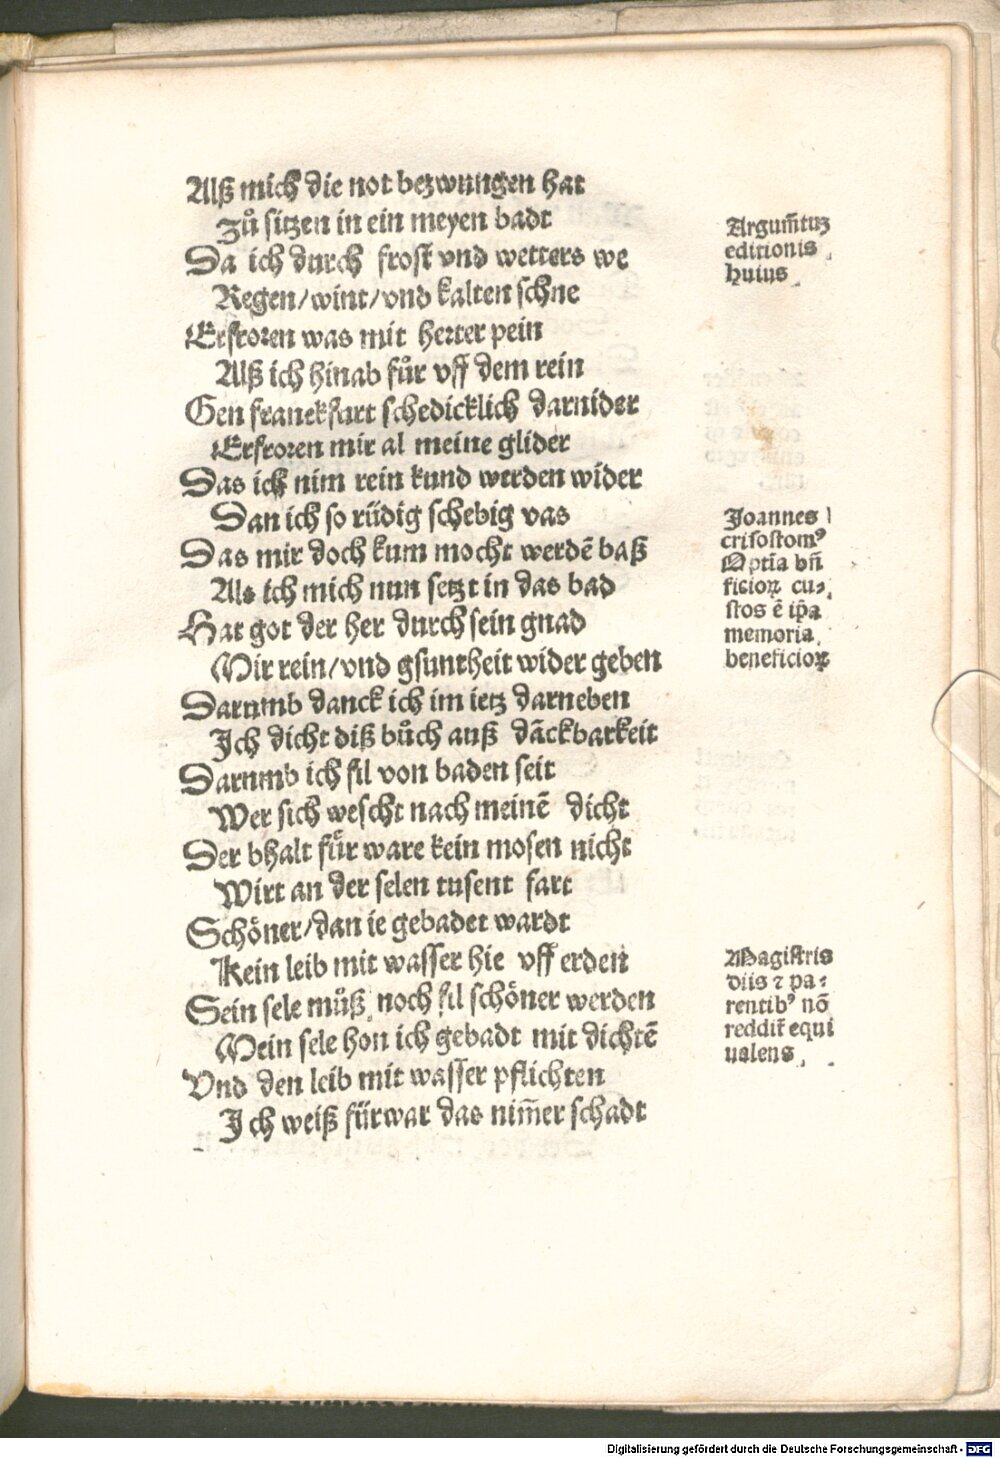 Alß mich die not bezwungen hat
Zů sitzen in ein meyen badt
Da ich durch frost vnd wetters we
Regen/wint/vnd kalten schne
Erfroren was mit herter pein
Alß ich hinab fůr vff dem rein
Gen franckfurt schedicklich darnider
Erfroren mir al meine glider
Das ich nim rein kund werden wider
Dan ich so rüdig schebig vas
Das mir doch kum mocht werdē baß
Als ich mich nun setzt in das bad
Hat got der her durch sein gnad
Mir rein/vnd gsuntheit wider geben
Darumb danck ich im ietz darneben
Ich dicht diß bůch auß dāckbarkeit
Darumb ich fil von baden seit
Wer sich wescht nach meinē dicht
Der bhalt fůr ware kein mosen nicht
Wirt an der selen tusent fart
Schöner/dan ie gebadet wardt
Kein leib mit wasser hie vff erden
Sein sele můß noch fil schöner werden
Mein sele hon ich gebadt mit dichtē
Vnd den leib mit wasser pflichten
Ich weiß fürwar das nim̄er schadt
Argum̄tuꝫ
editionis
huius.
Joannes
crisostomꝰ
Optīa bn̄
ficioꝝ cu-
stos ē ip̄a
memoria
beneficioꝝ
Magistris
diis ⁊ pa-
rentibꝰ nō
reddit̄ equi
ualens.
Digitalisierung gefördert durch die Deutsche Forschungsgemeinschaft - DFG